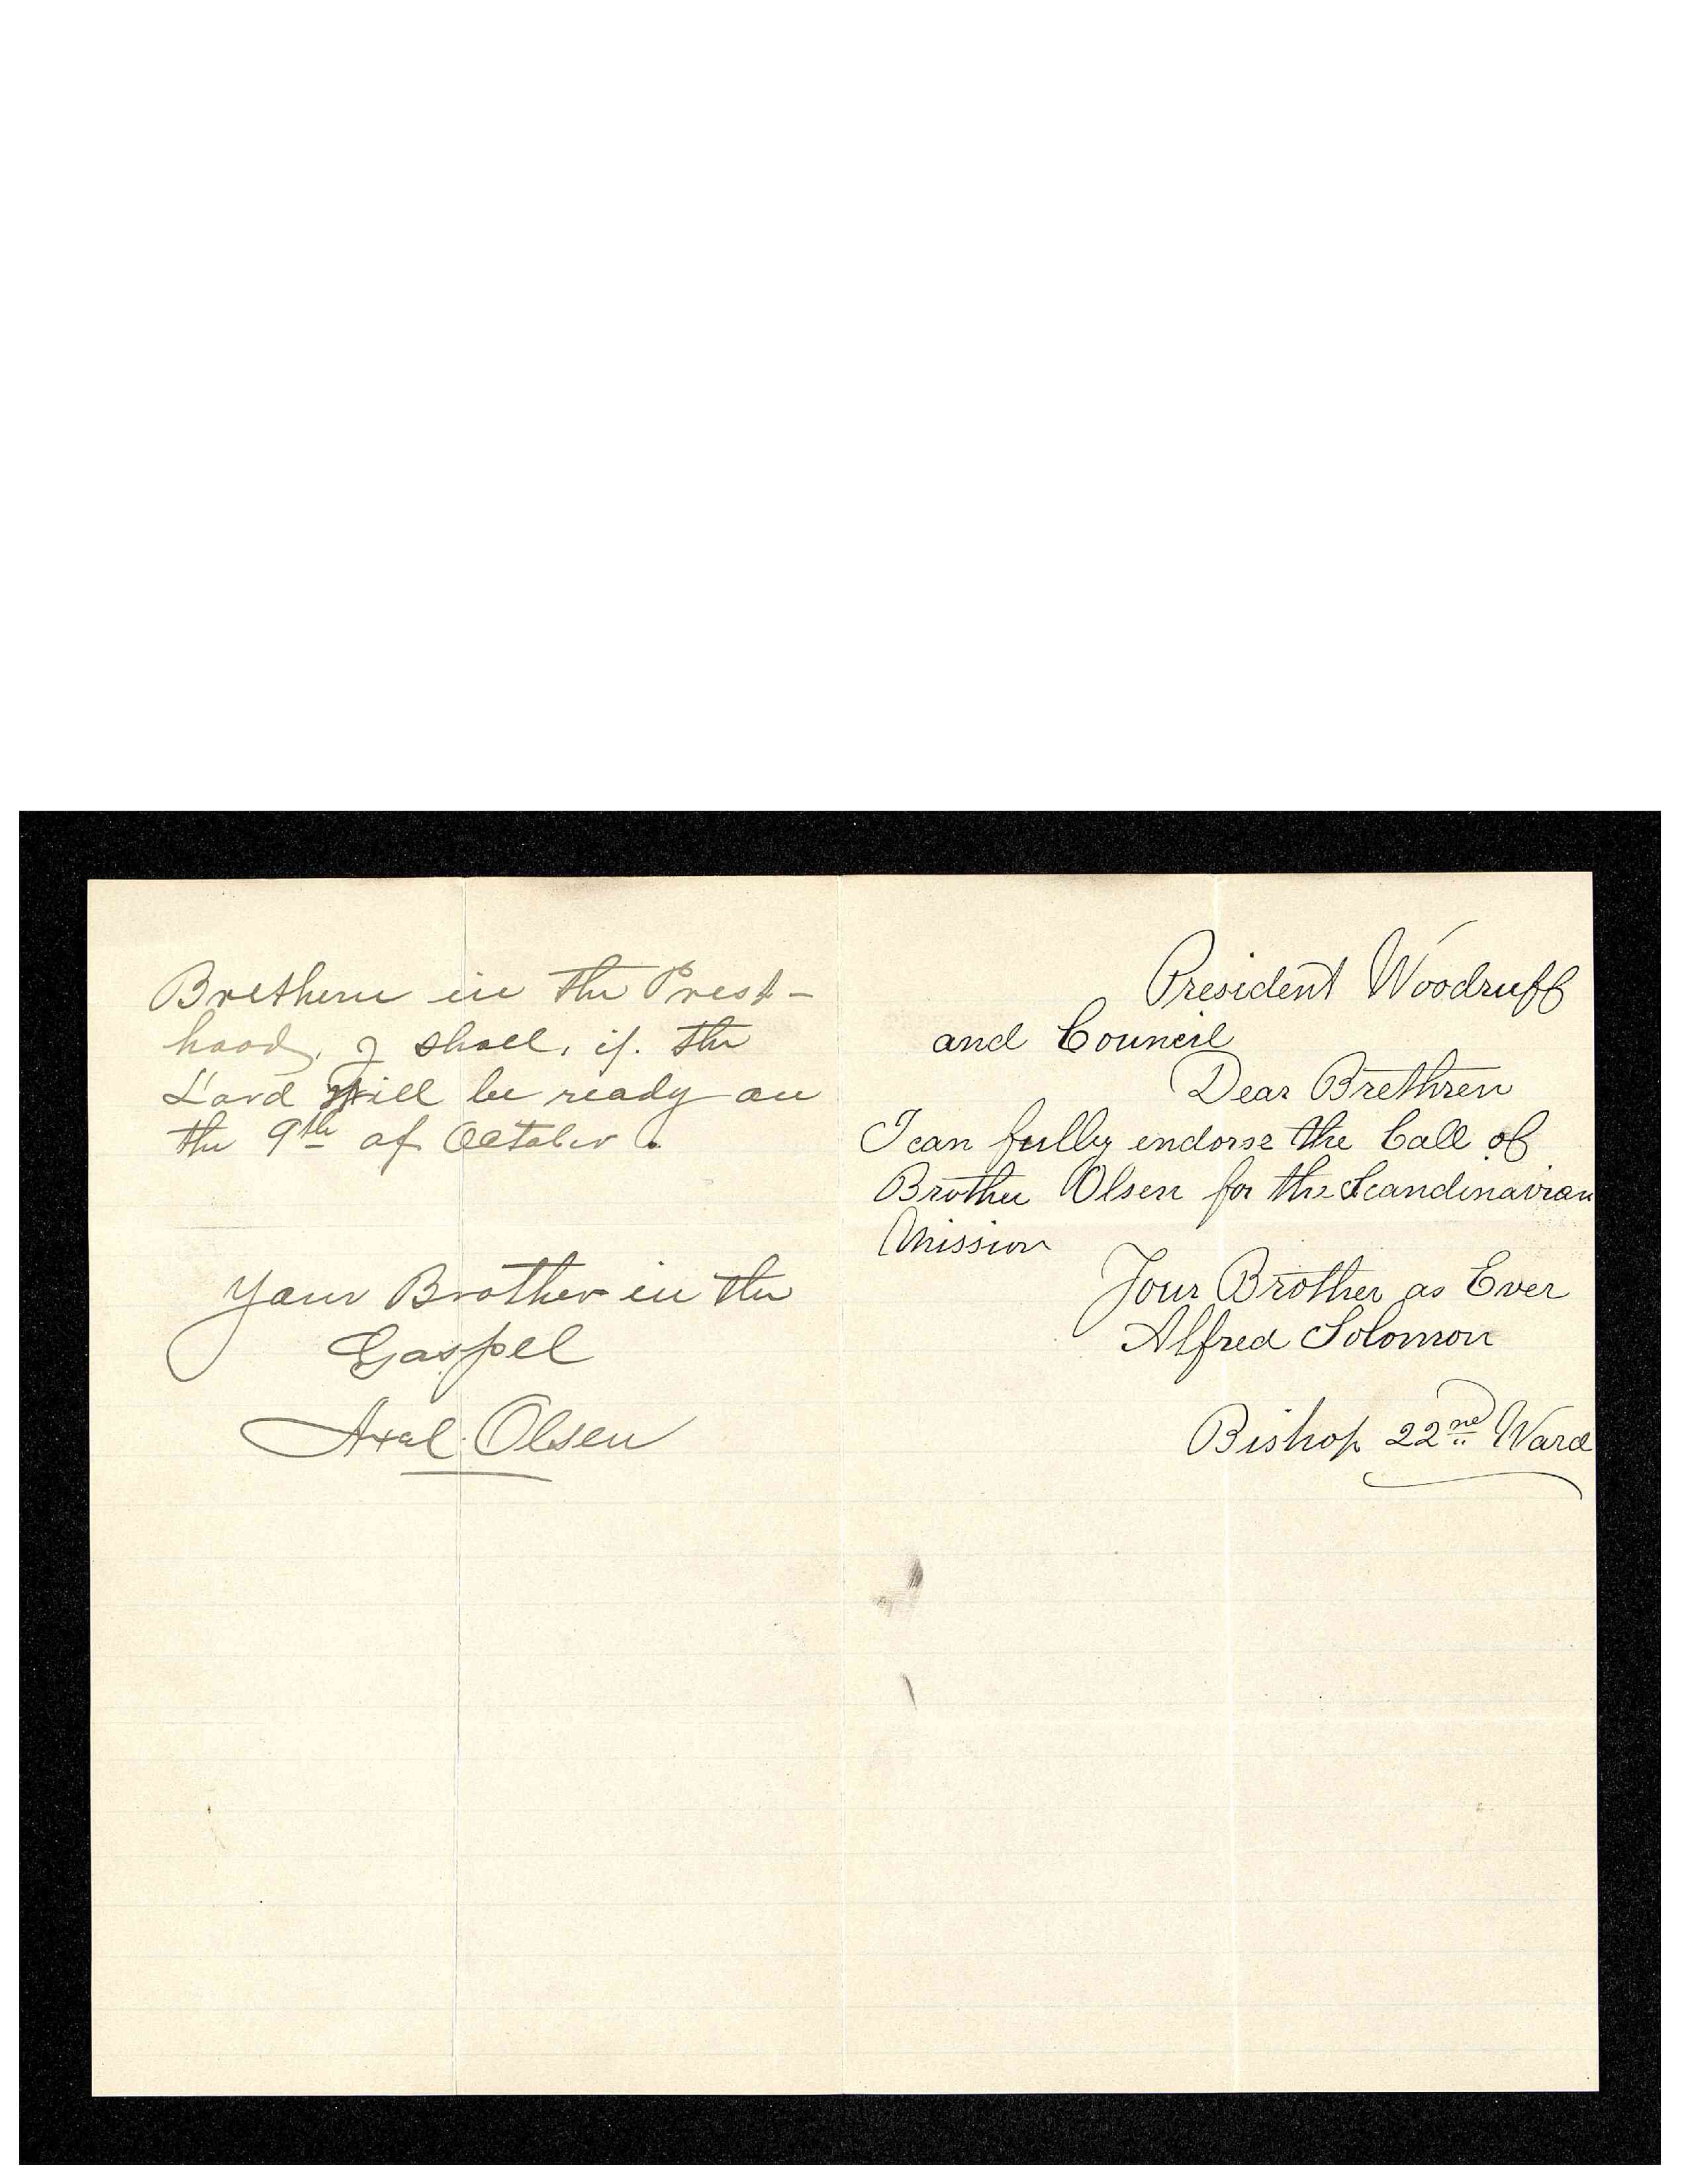 Brethern in the Prest-
hood, I shall, if. the
Lord will be ready on
the 9th of October.
Your Brother in the
Gospel
Axel Olsen
President Woodruff
and Council
Dear Brethren
I can fully endorse the Call of
Brother Olsen for the Scandinavian
Mission
Your Brother as Ever
Alfred Solomon
Bishop 22nd Ward